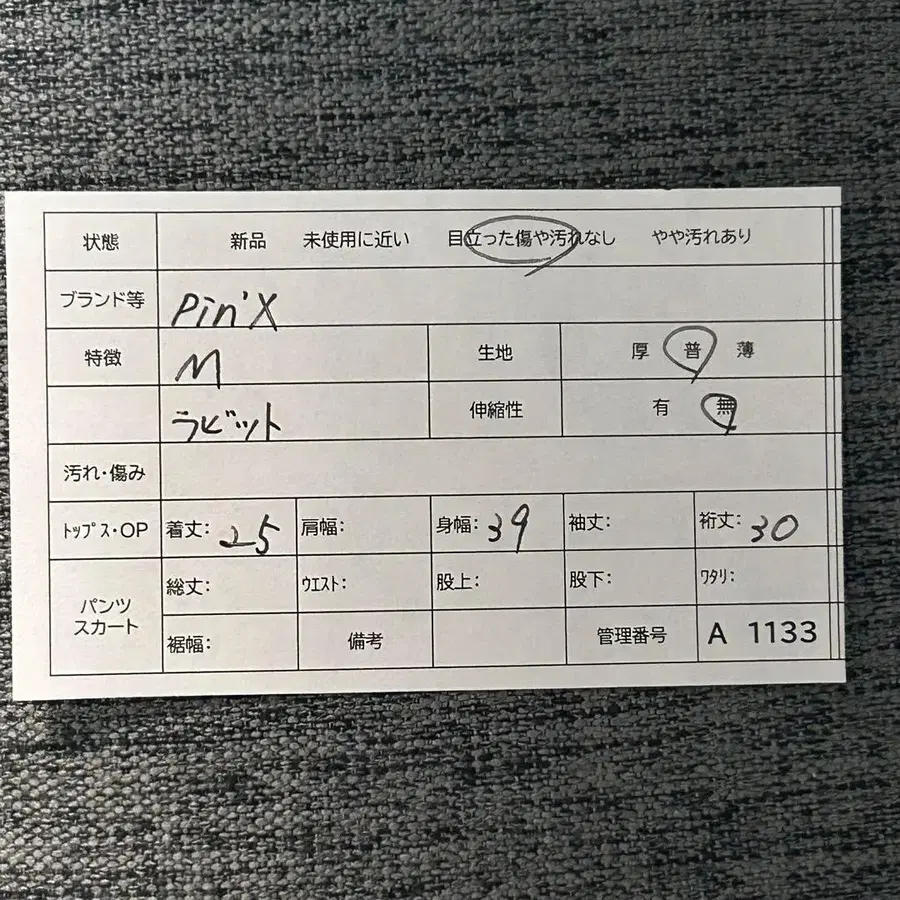 状態 新品 未使用に近い 目立った傷や汚れなし やや汚れあり
ブランド等 Pin'X
特徴 M 生地 厚 普 薄
ラビット 伸縮性 有 無
汚れ・傷み
ﾄｯﾌﾟｽ・OP 着丈: 25 肩幅: 身幅: 39 袖丈: 裄丈: 30
パンツ スカート 総丈: ｳｴｽﾄ: 股上: 股下: ﾜﾀﾘ:
裾幅: 備考 管理番号 A 1133